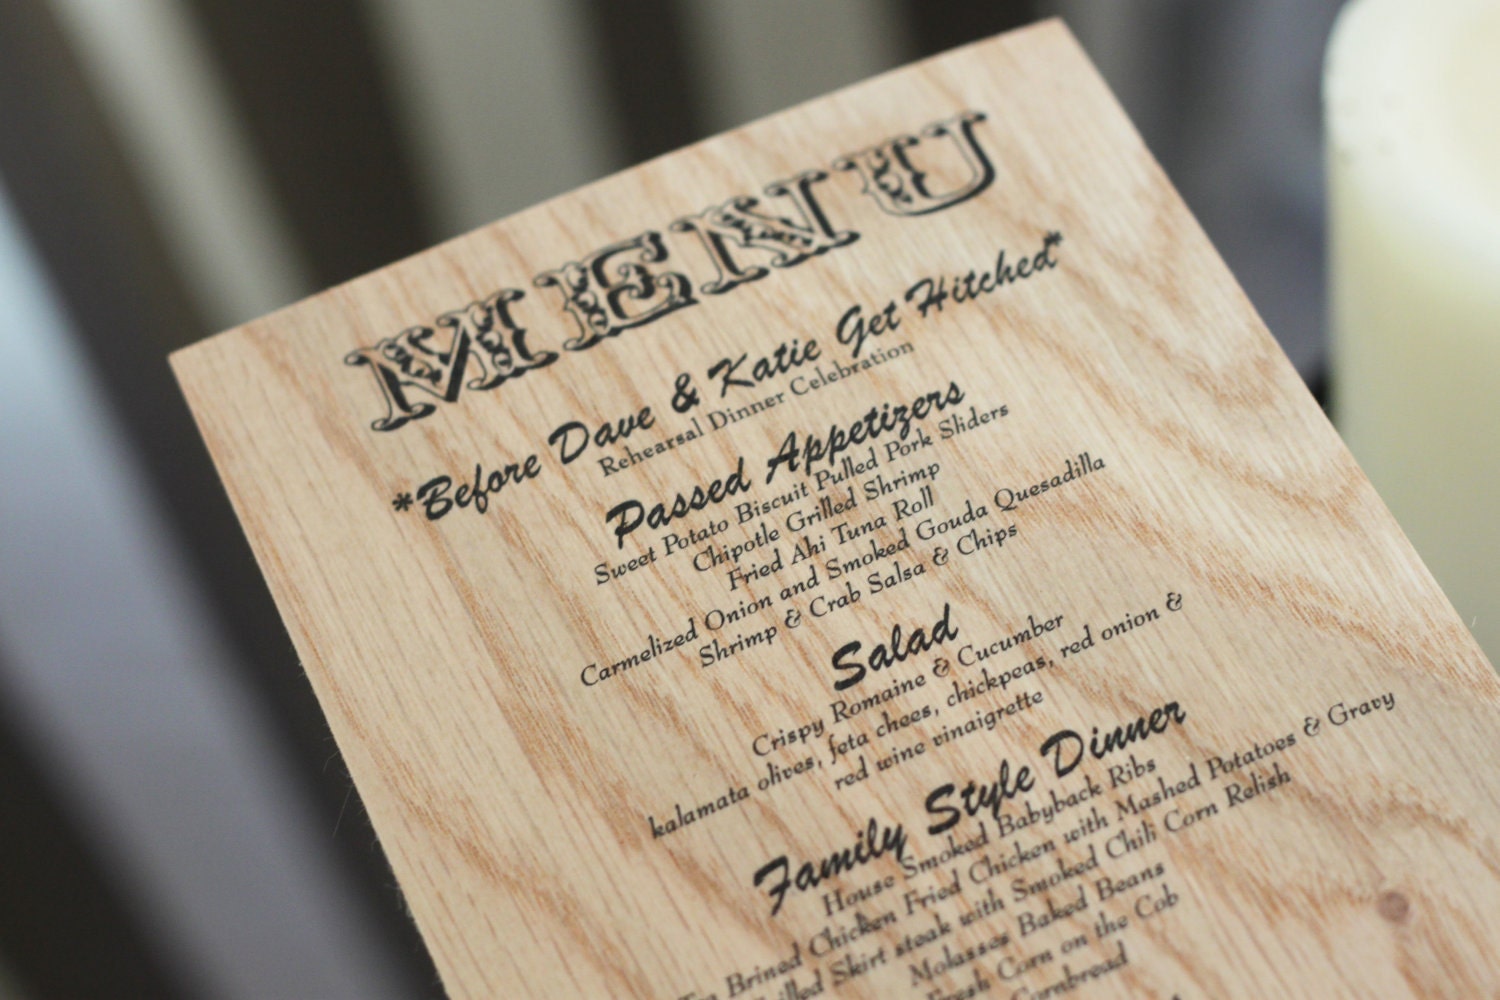 MENU
*Before Dave & Katie Get Hitched*
Rehearsal Dinner Celebration
Passed Appetizers
Sweet Potato Biscuit Pulled Pork Sliders
Chipotle Grilled Shrimp
Fried Ahi Tuna Roll
Carmelized Onion and Smoked Gouda Quesadilla
Shrimp & Crab Salsa & Chips
Salad
Crispy Romaine & Cucumber
kalamata olives, feta chees, chickpeas, red onion &
red wine vinaigrette
Family Style Dinner
House Smoked Babyback Ribs
Brined Chicken Fried Chicken with Mashed Potatoes & Gravy
Skirt steak with Smoked Chili Corn Relish
Molasses Baked Beans
Fresh Corn on the Cob
Cornbread